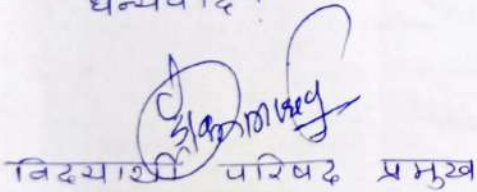 धन्यवाद !
विदयार्थी परिषद प्रमुख